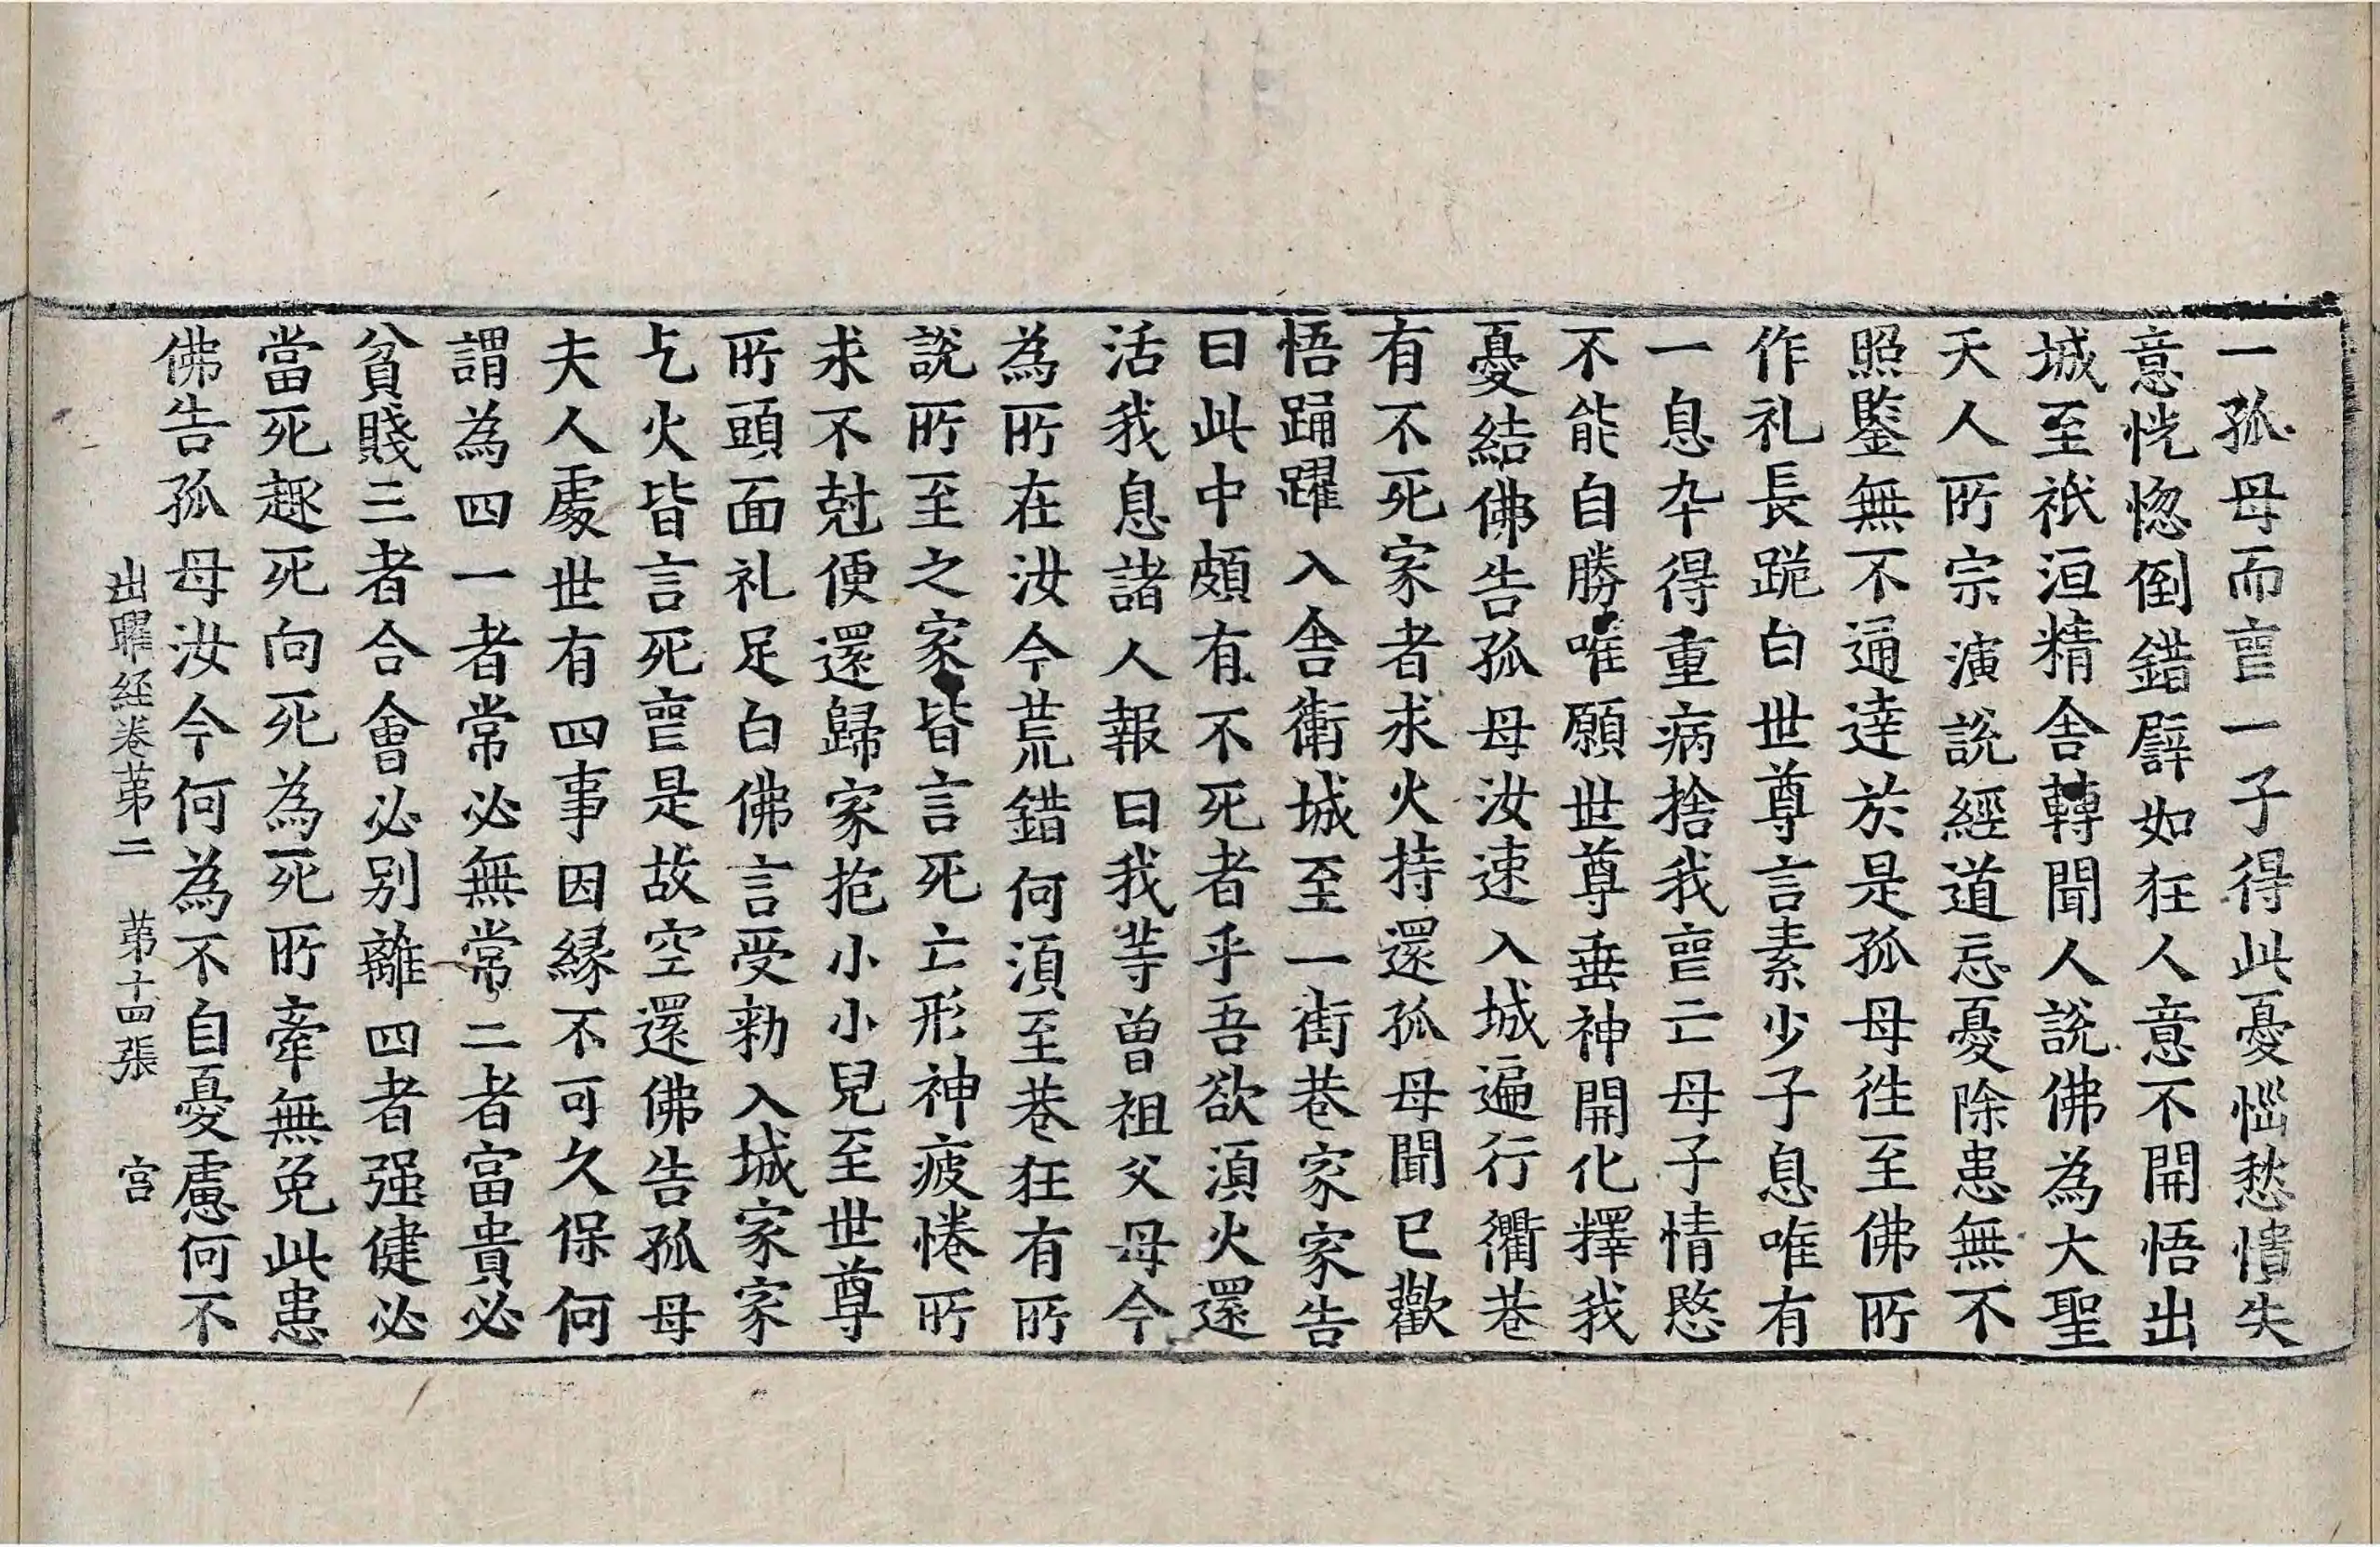 一孤母而䘮一子得此憂惱愁憒失
意恍惚倒錯譬如狂人意不開悟出
城至祇洹精舍轉聞人說佛為大聖
天人所宗演說經道忘憂除患無不
照鑒無不通達於是孤母徃至佛所
作礼長跪白世尊言素少子息唯有
一息卒得重病捨我䘮亡母子情愍
不能自勝唯願世尊垂神開化釋我
憂結佛告孤母汝速入城遍行衢巷
有不死家者求火持還孤母聞已歡
悟踊躍入舍衛城至一街巷家家告
曰此中頗有不死者乎吾欲湏火還
活我息諸人報曰我等曾祖父母今
為所在汝今荒錯何湏至巷狂有所
說所至之家皆言死亡形神疲惓所
求不尅便還歸家抱小小兒至世尊
所頭面礼足白佛言受勑入城家家
乞火皆言死䘮是故空還佛告孤母
夫人處世有四事因緣不可久保何
謂為四一者常必無常二者富貴必
貧賤三者合會必別離四者强健必
當死趣死向死為死所牽無免此患
佛告孤母汝今何為不自憂慮何不
出曜経卷苐二　苐十四張　宫